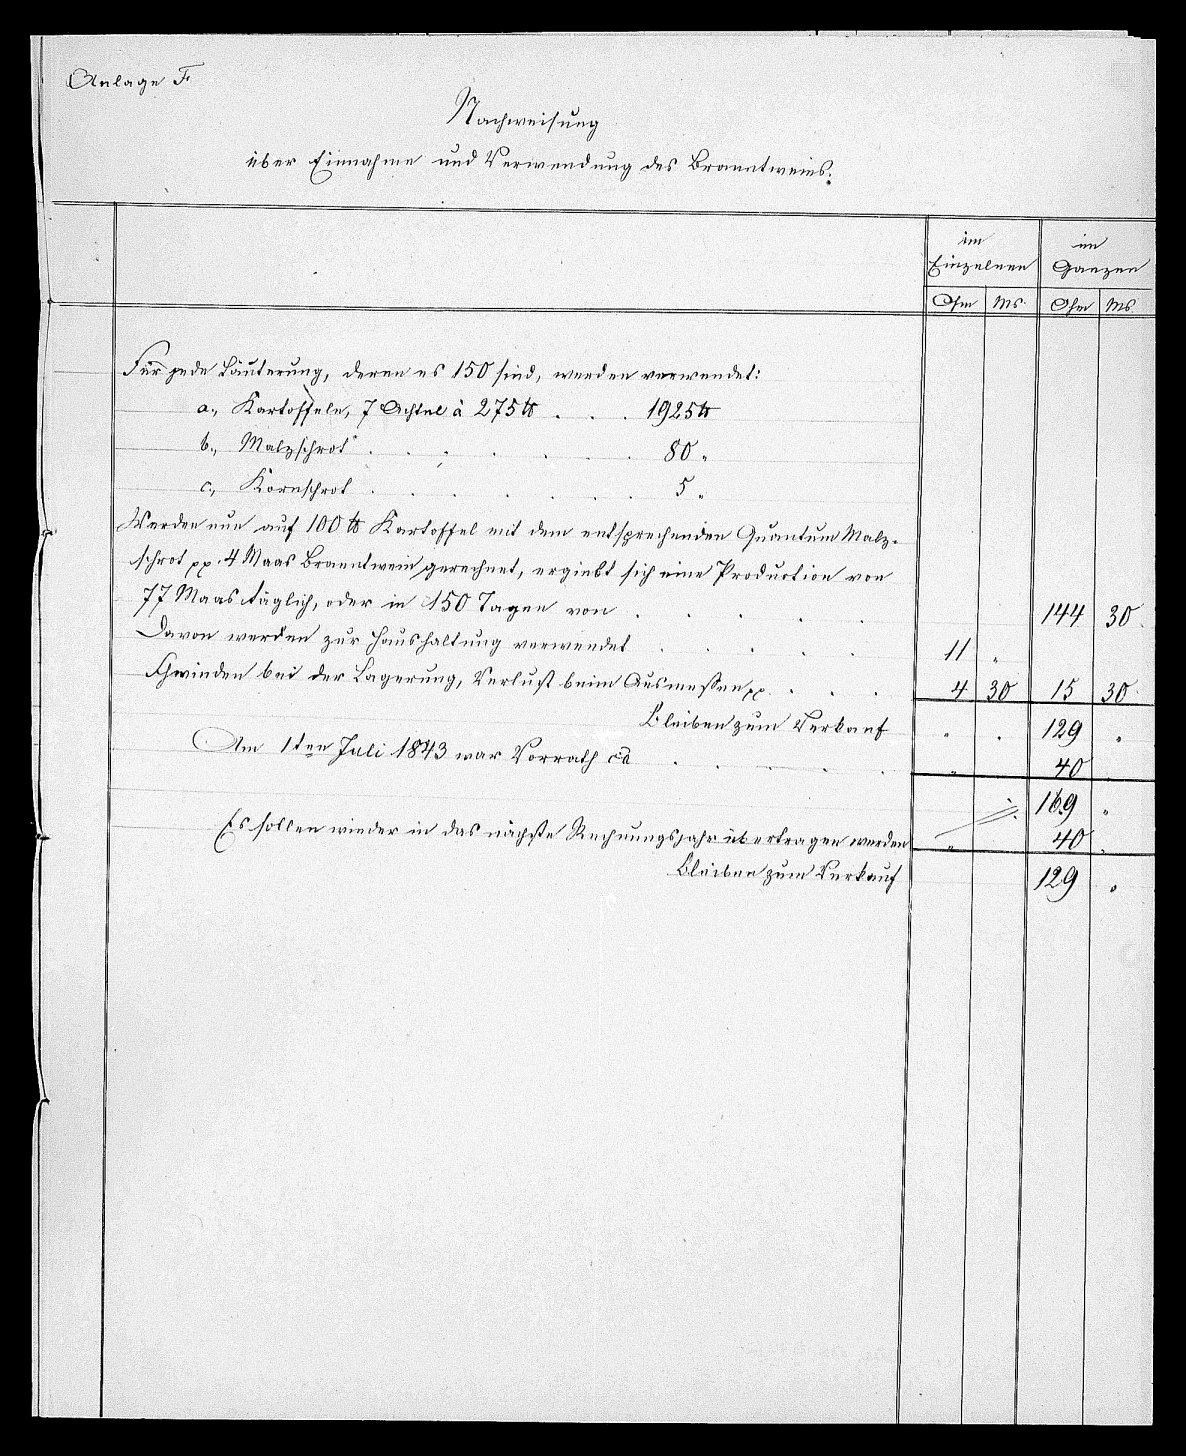 Anlage F
Nachweisung
über Einnahme und Verwendung des Branntweins.
im im
Einzelnen Ganzen
Ohm Ms. Ohm Ms.
Für jede Läuterung, deren es 150 sind, werden verwendet:
a., Kartoffeln, 7 Achtel à 275 ℔ . . . 1925 ℔
b., Malzschrot . . . . . . . 80 „
c., Kornschrot . . . . . . . 5 „
Werden nun auf 100 ℔ Kartoffel mit dem entsprechenden Quantum Malz-
schrot pp. 4 Maas Branntwein gerechnet, ergiebt sich eine Production von
77 Maas täglich, oder in 150 Tagen von . . . . . 144 30.
Davon werden zur Haushaltung verwendet . . . . . 11 „
Schwinden bei der Lagerung, Verlust beim Ausmessen pp. . . . 4 30 15 30.
Bleiben zum Verkauf „ . 129 „
Am 1ten Juli 1843 war Vorrath ca . . . . . „ 40 .
169 „
Es sollen wieder in das nächste Rechnungsjahr übertragen werden „ 40 „
Bleiben zum Verkauf 129 „